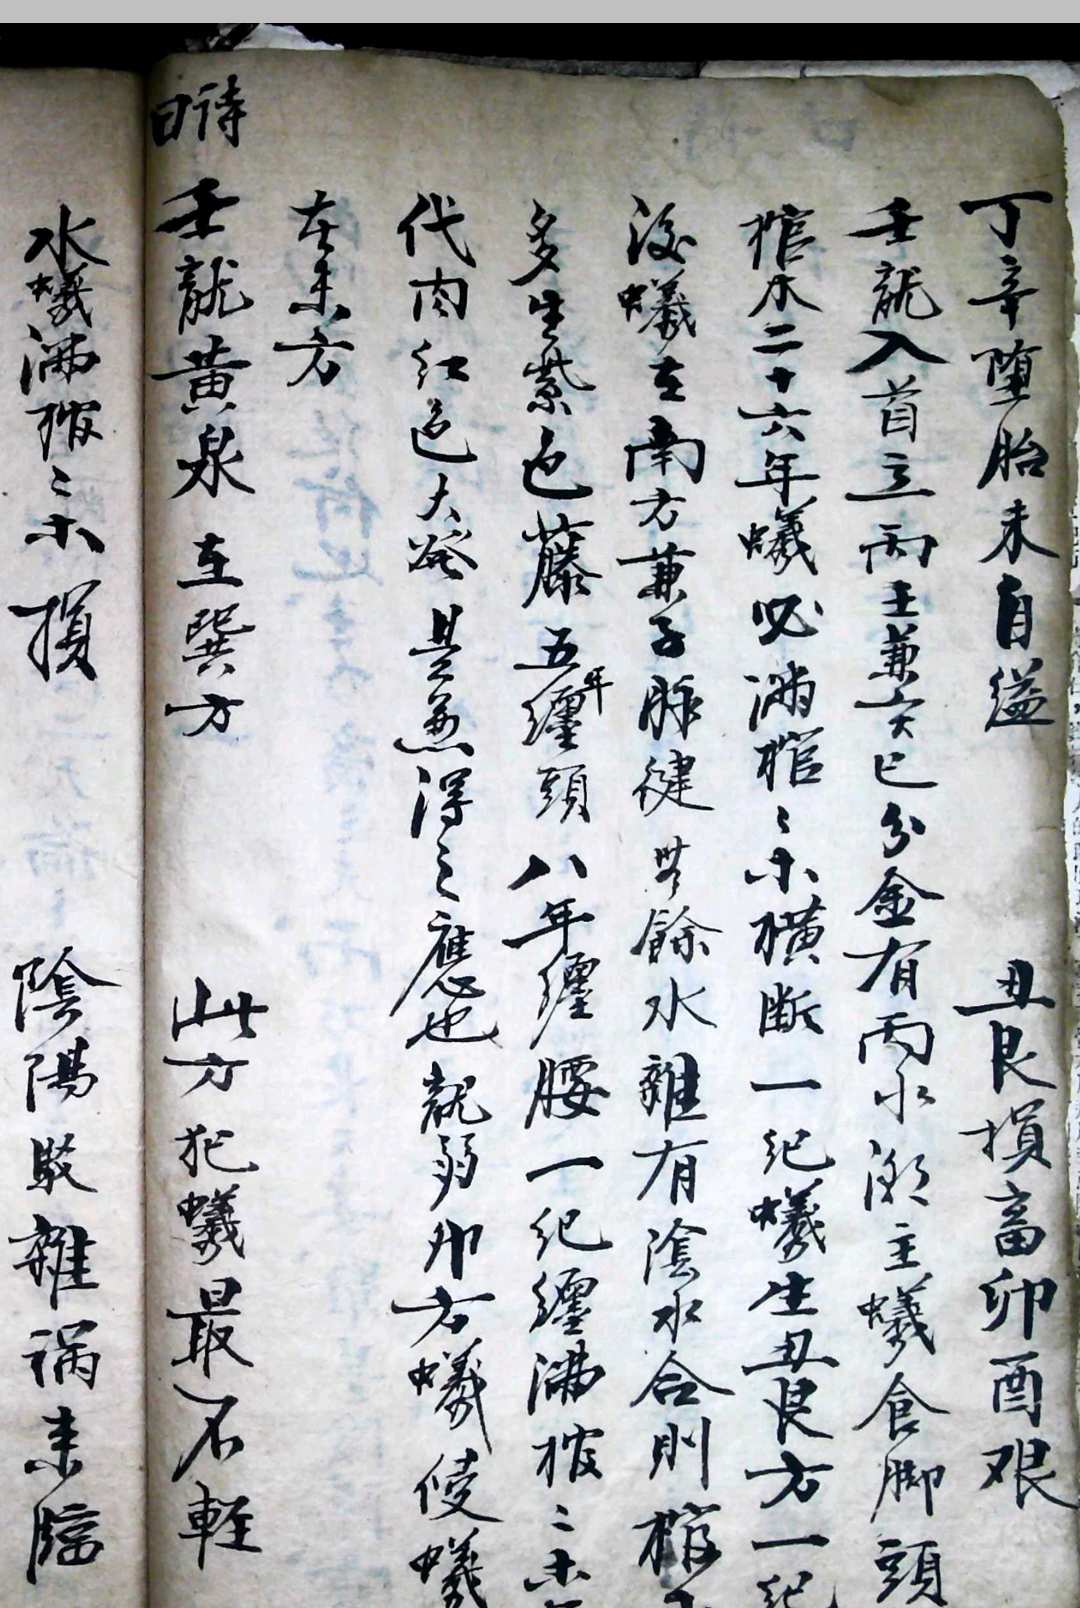 丁辛墮胎未自縊 丑艮損畜卯酉艰
壬龍入首立丙壬兼亥巳分金有丙水潮主蟻食脚頭
棺木二十六年蟻必滿棺〻木横断一纪蟻生丑艮方一纪
後蟻在南方兼子脉健 餘水雜有陰水合則棺
多生紫色藤五年纏頭八年纏腰一纪纏满棺〻木
代肉红色大发是兼得之應也龍弱卯方蟻侵蟻
在未方
诗曰
壬龍黄泉在巽方 此方犯蟻最不輕
水蟻满棺〻木損 陰陽駁雜禍来臨